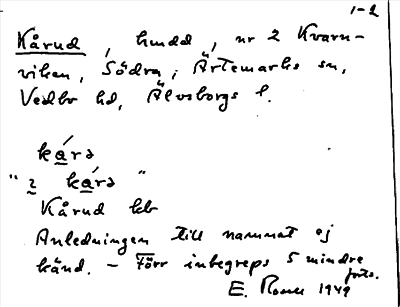 1-2
Kårud, hmdd, nr 2 Kvarn-
viken, Södra, i Ärtemarks sn,
Vedbo hd, Älvsborgs l.
kárə
"2 kárə"
Kårud kb
Anledningen till namnet ej
känd. - Förr inbegreps 5 mindre
forts.
E. 1949